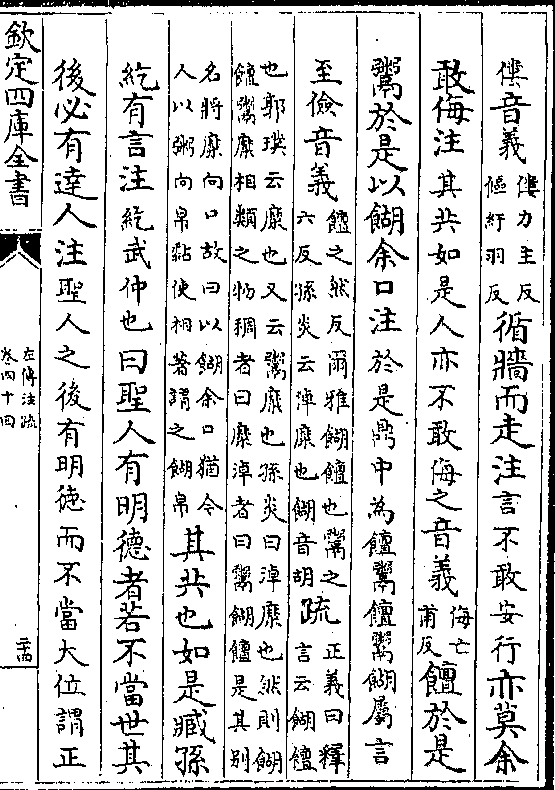 僂音義僂力主反
傴紆羽反循牆而走注言不敢安行亦莫余
敢侮注其共如是人亦不敢侮之音義侮亡
甫反饘於是
鬻於是以餬余口注於是鼎中為饘鬻饘鬻餬屬言
至儉音義饘之然反爾雅餬饘也鬻之
六反孫炎云淖糜也餬音胡疏正義曰釋
言云餬饘
也郭璞云糜也又云鬻糜也孫炎曰淖糜也然則餬
饘鬻糜相類之物稠者曰糜淖者曰鬻餬饘是其別
名將糜向口故曰以餬余口猶今
人以粥向帛黏使相著謂之餬帛其共也如是臧孫
紇有言注紇武仲也曰聖人有明德者若不當世其
後必有達人注聖人之後有明德而不當大位謂正
欽定四庫全書
左傳注疏
卷四十四
二十四